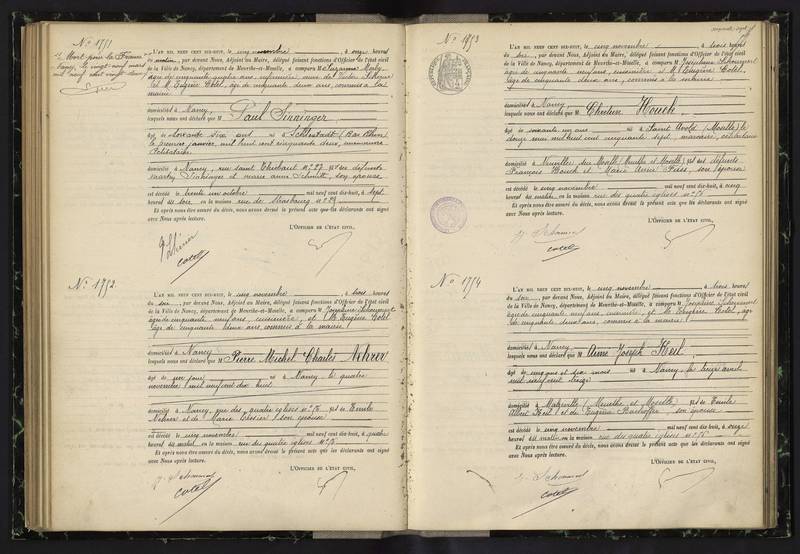 N° 1751
Mort pour la France
L'AN MIL NEUF CENT DIX-HUIT, le cinq novembre, à onze heures
du matin, par devant Nous, Adjoint au Maire, délégué faisant fonctions d'Officier de l'état civil
de la Ville de Nancy, département de Meurthe-et-Moselle, a comparu M
âgée de cinquante quatre ans,
et M. Eugène Cotel, âgé de cinquante deux ans, commis à la
mairie
domiciliés à Nancy
lesquels nous ont déclaré que M Paul Sinninger
âgé de soixante six ans né à Schlestadt (Bas Rhin)
le premier janvier mil huit cent cinquante deux,
domicilié à Nancy, rue saint Thiébaut n° 27 fils de défunts
Sinninger et marie anne Schmitt, son épouse
est décédé le trente un octobre mil neuf cent dix-huit, à sept
heures du soir, en la maison rue de Strasbourg n° 29
Et après nous être assuré du décès, nous avons dressé le présent acte que les déclarants ont signé
avec Nous après lecture.
L'OFFICIER DE L'ÉTAT CIVIL,
cotel
N° 1752
L'AN MIL NEUF CENT DIX-HUIT, le cinq novembre, à trois heures
du soir, par devant Nous, Adjoint au Maire, délégué faisant fonctions d'Officier de l'état civil
de la Ville de Nancy, département de Meurthe-et-Moselle, a comparu M Joséphine
âgée de cinquante neuf ans, cuisinière, et M. Eugène Cotel,
âgé de cinquante deux ans, commis à la mairie
domiciliés à Nancy
lesquels nous ont déclaré que M Pierre Michel Charles Nehrer
âgé de un jour né à Nancy le quatre
novembre mil neuf cent dix huit
domicilié à Nancy, rue des quatre églises n° fils de Emile
Nehrer et de Marie, son épouse
est décédé le cinq novembre mil neuf cent dix-huit, à quatre
heures du matin, en la maison rue des quatre églises n°
Et après nous être assuré du décès, nous avons dressé le présent acte que les déclarants ont signé
avec Nous après lecture.
L'OFFICIER DE L'ÉTAT CIVIL,
cotel
N° 1753
L'AN MIL NEUF CENT DIX-HUIT, le cinq novembre, à trois heures
du soir, par devant Nous, Adjoint au Maire, délégué faisant fonctions d'Officier de l'état civil
de la Ville de Nancy, département de Meurthe-et-Moselle, a comparu M Joséphine
âgée de cinquante neuf ans, cuisinière et M. Eugène Cotel,
âgé de cinquante deux ans, commis à la mairie
domiciliés à Nancy
lesquels nous ont déclaré que M Chrétien Houch
âgé de soixante un ans né à Saint Avold (Moselle) le
douze mil huit cent cinquante sept,
domicilié à Neuviller sur Moselle (Meurthe et Moselle) fils de défunts
François Houch et Marie Anne, son épouse
est décédé le cinq novembre mil neuf cent dix-huit, à cinq
heures du matin, en la maison rue des quatre églises n°
Et après nous être assuré du décès, nous avons dressé le présent acte que les déclarants ont signé
avec Nous après lecture.
L'OFFICIER DE L'ÉTAT CIVIL,
cotel
N° 1754
L'AN MIL NEUF CENT DIX-HUIT, le cinq novembre, à trois heures
du soir, par devant Nous, Adjoint au Maire, délégué faisant fonctions d'Officier de l'état civil
de la Ville de Nancy, département de Meurthe-et-Moselle, a comparu M Joséphine
âgée de cinquante neuf ans, cuisinière, et M. Eugène Cotel, âgé
de cinquante deux ans, commis à la mairie
domiciliés à Nancy
lesquels nous ont déclaré que M Aimé Joseph Keil
âgé de cinq ans et six mois né à Nancy, le treize avril
mil neuf cent treize
domicilié à (Meurthe et Moselle) fils de Emile
Albert Keil et de Eugénie, son épouse
est décédé le cinq novembre mil neuf cent dix-huit, à onze
heures du matin, en la maison rue des quatre églises n°
Et après nous être assuré du décès, nous avons dressé le présent acte que les déclarants ont signé
avec Nous après lecture.
L'OFFICIER DE L'ÉTAT CIVIL,
cotel